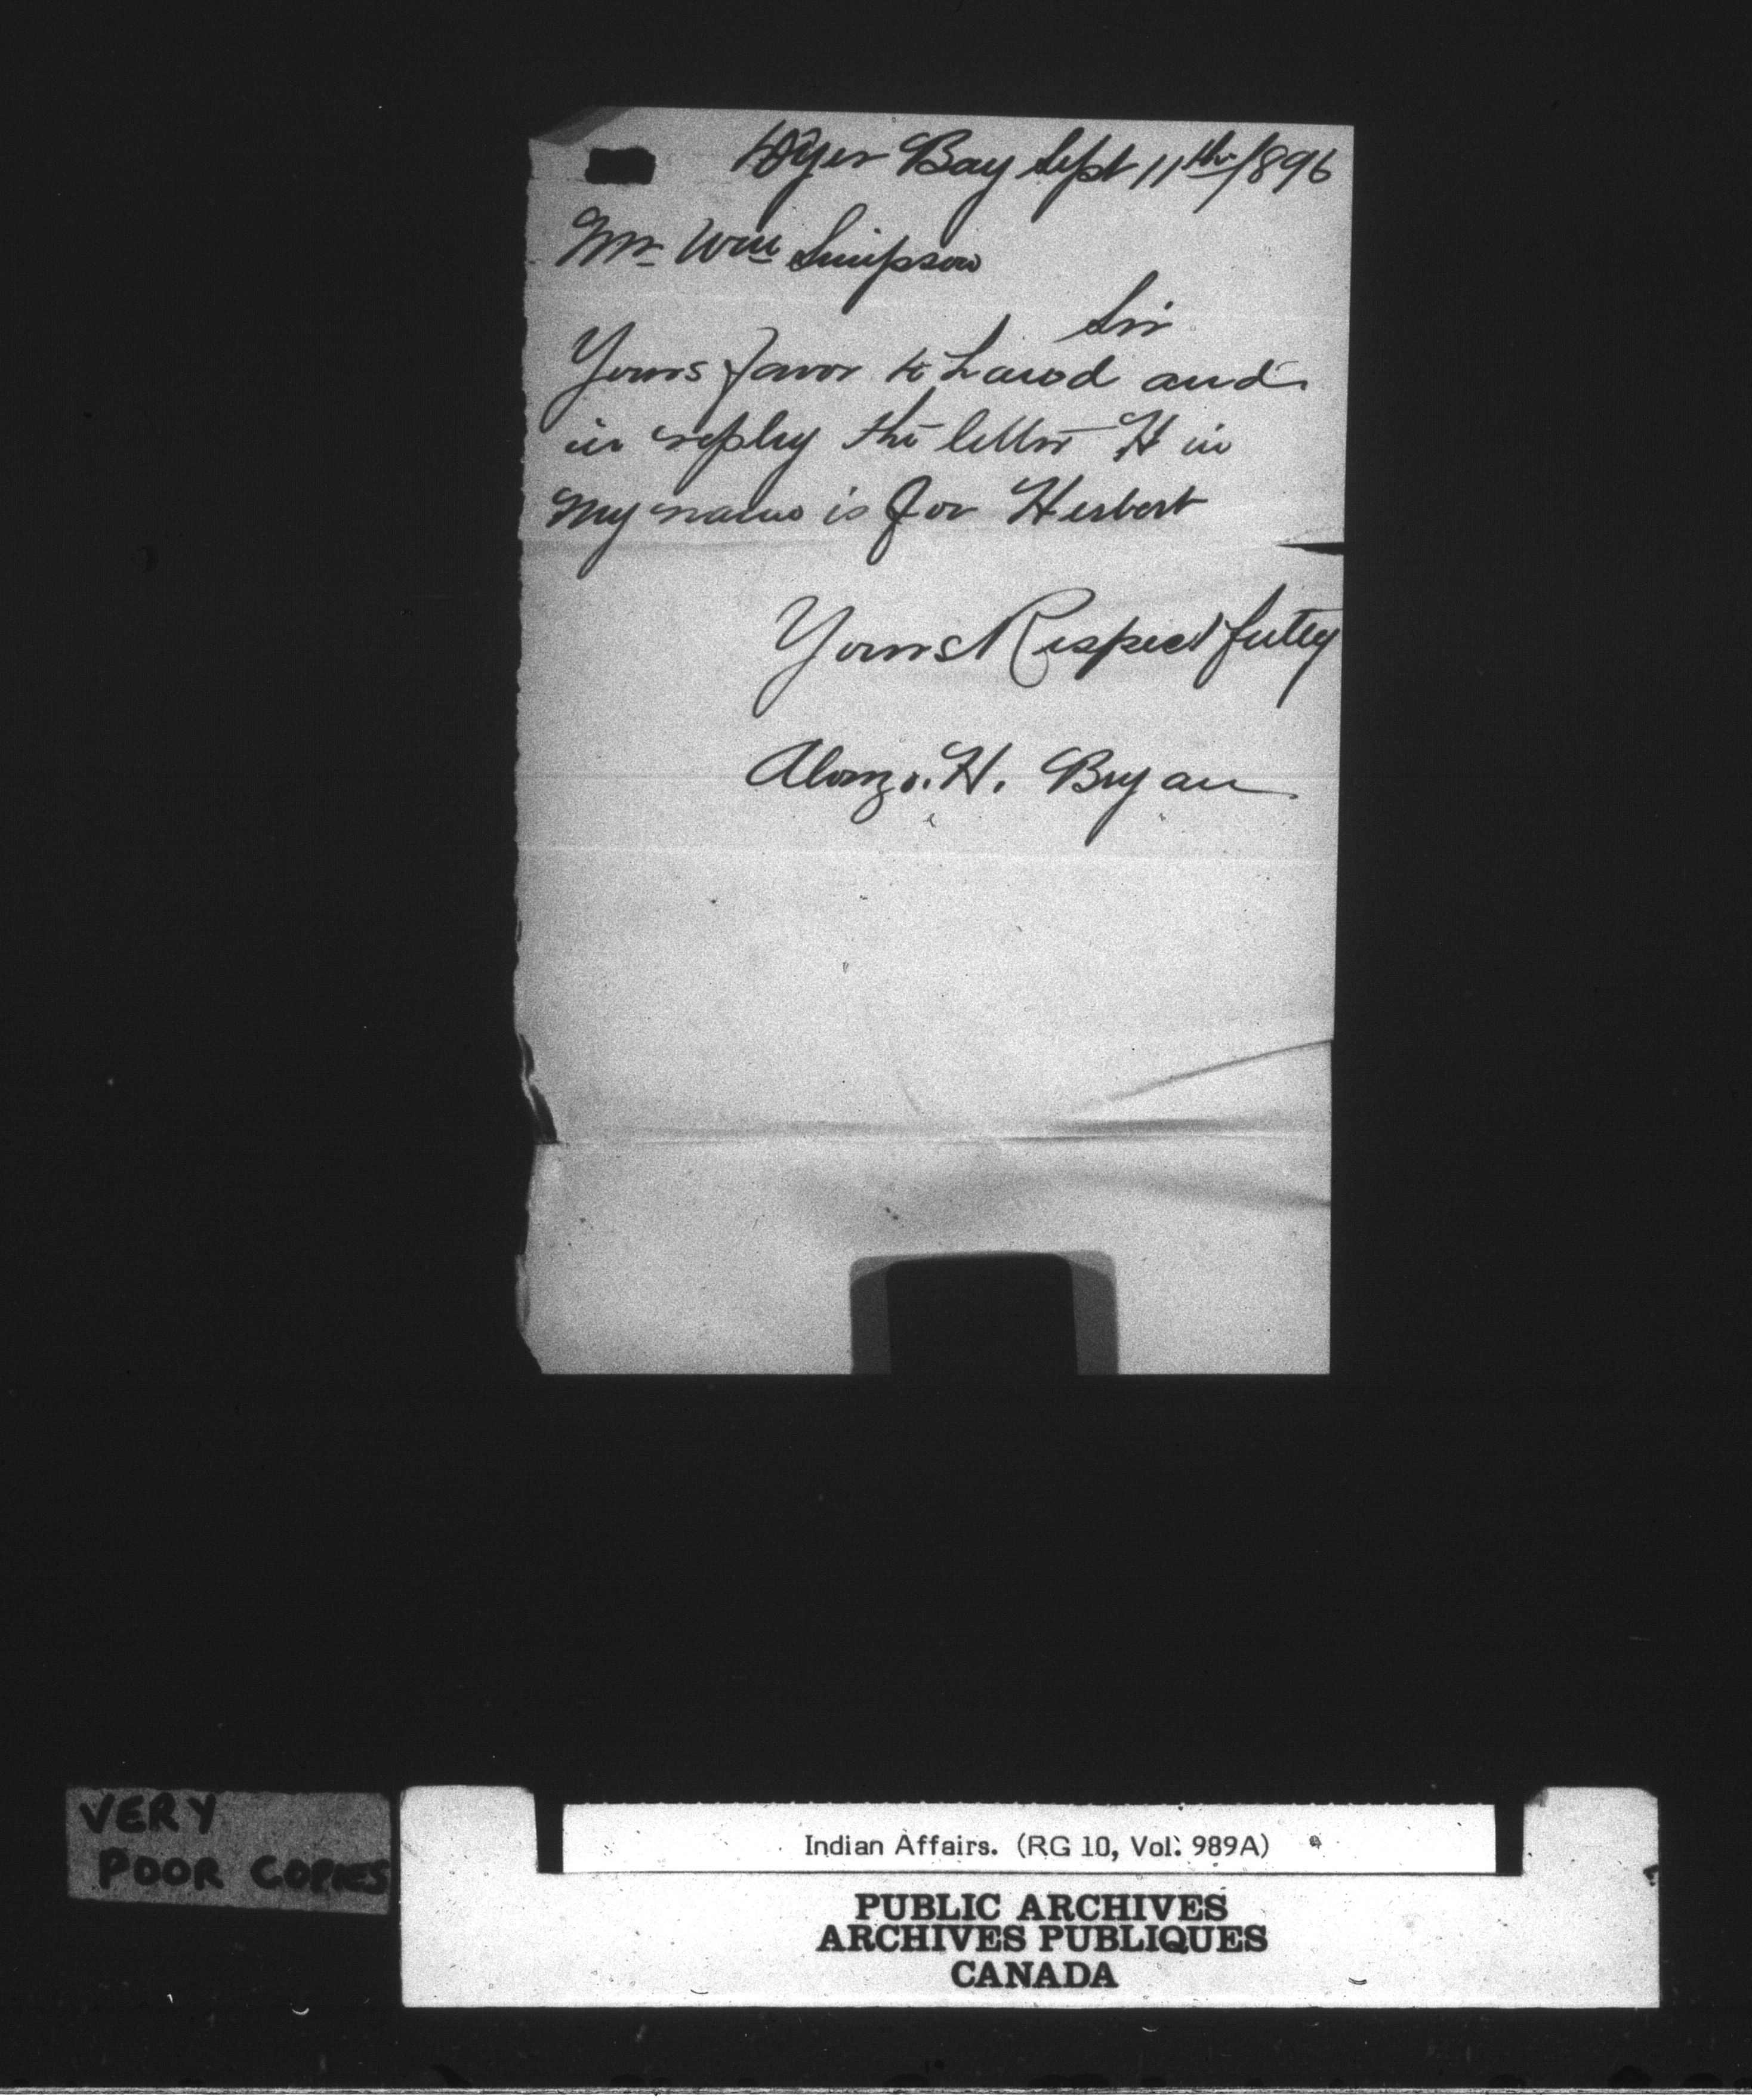 Dyer Bay Sept 11th/1896
Mr Wm Simpson
Sir
Yours favor to hand and
in reply the letter H in
my name is for Herbert
Yours Respectfully
Alonzo. H. Bryan
VERY
POOR COPIES
Indian Affairs. (RG 10, Vol. 989A)
PUBLIC ARCHIVES
ARCHIVES PUBLIQUES
CANADA